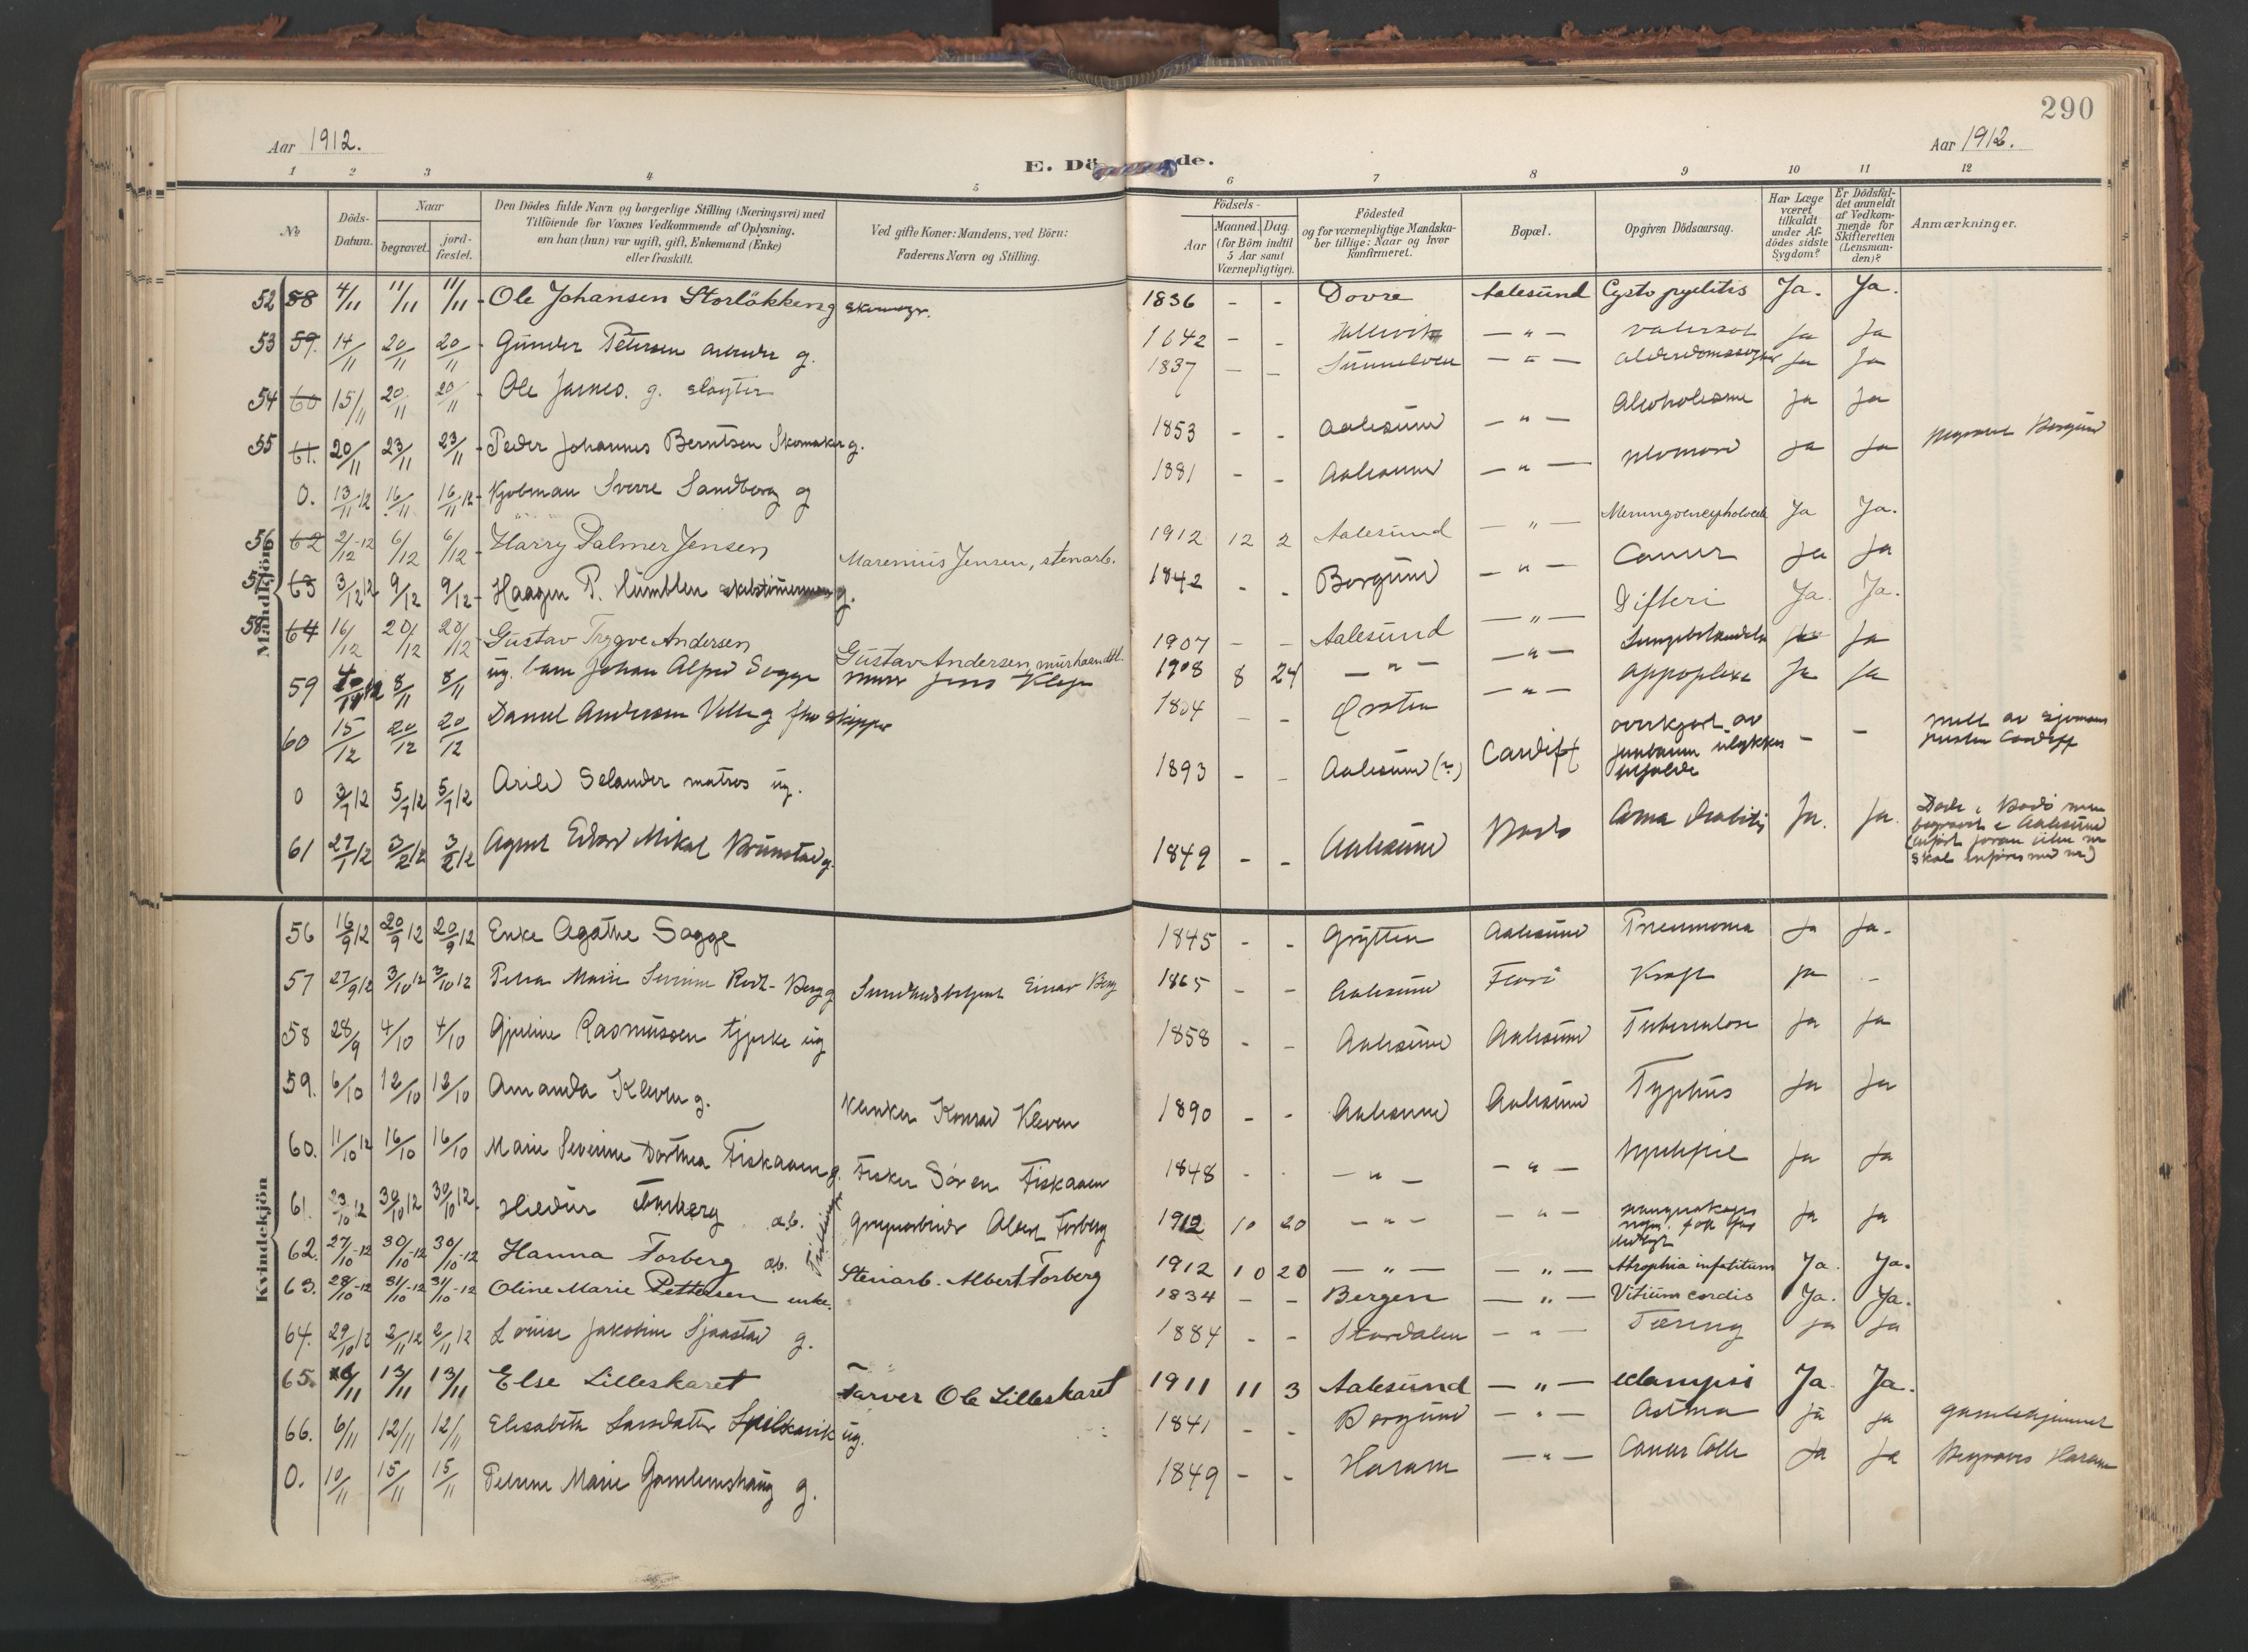 290
Aar 1912.
E. Dö de.
Aar 1912.
1 2 3 4 5 6 7 8 9 10 11 12
No
Döds-
Datum.
Naar
begravet.
jord-
fæstet.
Den Dödes fulde Navn og borgerlige Stilling (Næringsvei) med
Tilföiende for Voxnes Vedkommende af Oplysning,
om han (hun) var ugift, gift, Enkemand (Enke)
eller fraskilt.
Ved gifte Koner: Mandens, ved Börn:
Faderens Navn og Stilling.
Födsels-
Aar
Maaned. Dag.
(for Börn indtil
5 Aar samt
Værnepligtige).
Födested
og for værnepligtige Mandska-
ber tillige: Naar og hvor
konfirmeret.
Bopæl.
Opgiven Dödsaarsag.
Har Læge
været
tilkaldt
under Af-
dödes sidste
Sygdom?
Er Dödsfal-
det anmeldt
af Vedkom-
mende for
Skifteretten
(Lensman-
den)?
Anmærkninger.
Mandkjön
52 58 4/11 11/11 11/11 Ole Johansen Storlökken g 1836 - - Dovre Aalesund Cysto pyelitis Ja. Ja.
53 59. 14/11 20/11 20/11 Gunder Petersen g. 1842 - - — " — Ja Ja
54 60 15/11 20/11 20/11 Ole Jarnes. g. slagter 1837 - - Sunnelven — " — Ja Ja
55 61. 20/11 23/11 23/11 Peder Johannes Berntsen Skomaker g. 1853 - - Aalesund — " — Alcoholisme Ja Ja
0. 13/11 12 16/11 16/11 12 Sverre Sandborg g 1881 - - Aalesund — " — Ja Ja Borgund
56 62 2/12-12 6/12 6/12 Harry Palmer Jensen Marenius Jensen, stenarb. 1912 12 2 Aalesund — " — Meningoencephalocele Ja Ja.
57 63 3/12 12 9/12 9/12 Haagen P. Humblen g. 1842 - - Borgund — " — Cancer Ja Ja
58 64 16/12 20/12 20/12 Gustav Trygve Andersen Gustav Andersen, murhaandtl. 1907 - - Aalesund — " — Difteri Ja. Ja.
59 8/11 8/11 ug. barn Johan Alfred Sogge murer Jens 1908 8 24 — " — — " — Ja
60 15/12 20/12 20/12 Daniel Andersen g fhv skipper 1834 - - Ørsten — " — appoplexi Ja Ja
0 3/7 12 5/7 12 5/7 12 Arild Selander matros ug. 1893 - - Aalesund (?) Cardiff overkjørt av - - meld av sjømans
presten Cardiff
61 27/1 12 3/2 12 3/2 12 Agent Edvard Mikal Brunstad g. 1849 - - Aalesund Bodö Coma diabetis Ja. Ja. Döde i Bodö men
begravet i Aalesund
(infört foran uten nr
skal inføres med nr)
Kvindekjön
56 16/9 12 20/9 12 20/9 12 Enke Agathe Sogge 1845 - - Grytten Aalesund Pneumonia Ja Ja.
57 27/9 12 3/10 12 3/10 12 Petra Marie Berg g Einar Berg 1865 - - Aalesund Kræft Ja -
58 28/9 4/10 4/10 Gjertine Rasmussen tjpike ug 1858 - - Aalesund Aalesund Tuberculose Ja Ja
59. 6/10 12/10 12/10 Amanda Kleven g. Konrad Kleven 1890 - - Aalesund Aalesund Typhus Ja Ja
60. 11/10 12 16/10 16/10 Marie Severine Dorthea Fiskaaen g. Fisker Søren Fiskaaen 1848 - - — " — — " — Ja Ja
61. 23/10 12 30/10 12 30/10 12. Forberg a.b. Albert Forberg 1912 10 20 — " — — " — Ja Ja
62. 27/10-12 30/10-12 30/10-12 Hanna Forberg a.b. Tvillinger Stenarb. Albert Forberg 1912 10 20 — " — — " — Atrophia infatitum Ja. Ja.
63. 28/10-12 31/10-12 31/10-12 Oline Marie Pettersen enke. 1834 - - Bergen — " — Vitium cordis Ja. Ja.
64. 29/10 12 2/11 12 2/11 12 Louise Jakobine Sjaastad g. 1884 - - Stordalen — " — Tæring Ja Ja
65. /11 13/11 13/11 Else Lilleskaret Farver Ole Lilleskaret 1911 11 3 Aalesund — " — eclampsi Ja. Ja.
66. 6/11 12/11 12/11 Elisabeth Larsdatter Spilkavik ug. 1841 - - Borgund — " — Astma Ja Ja gamlehjemmet
0. 10/11 15/11 15/11 Petrine Marie Gamlemshaug g. 1849 - - Haram — " — Ja Ja Begraves Haram